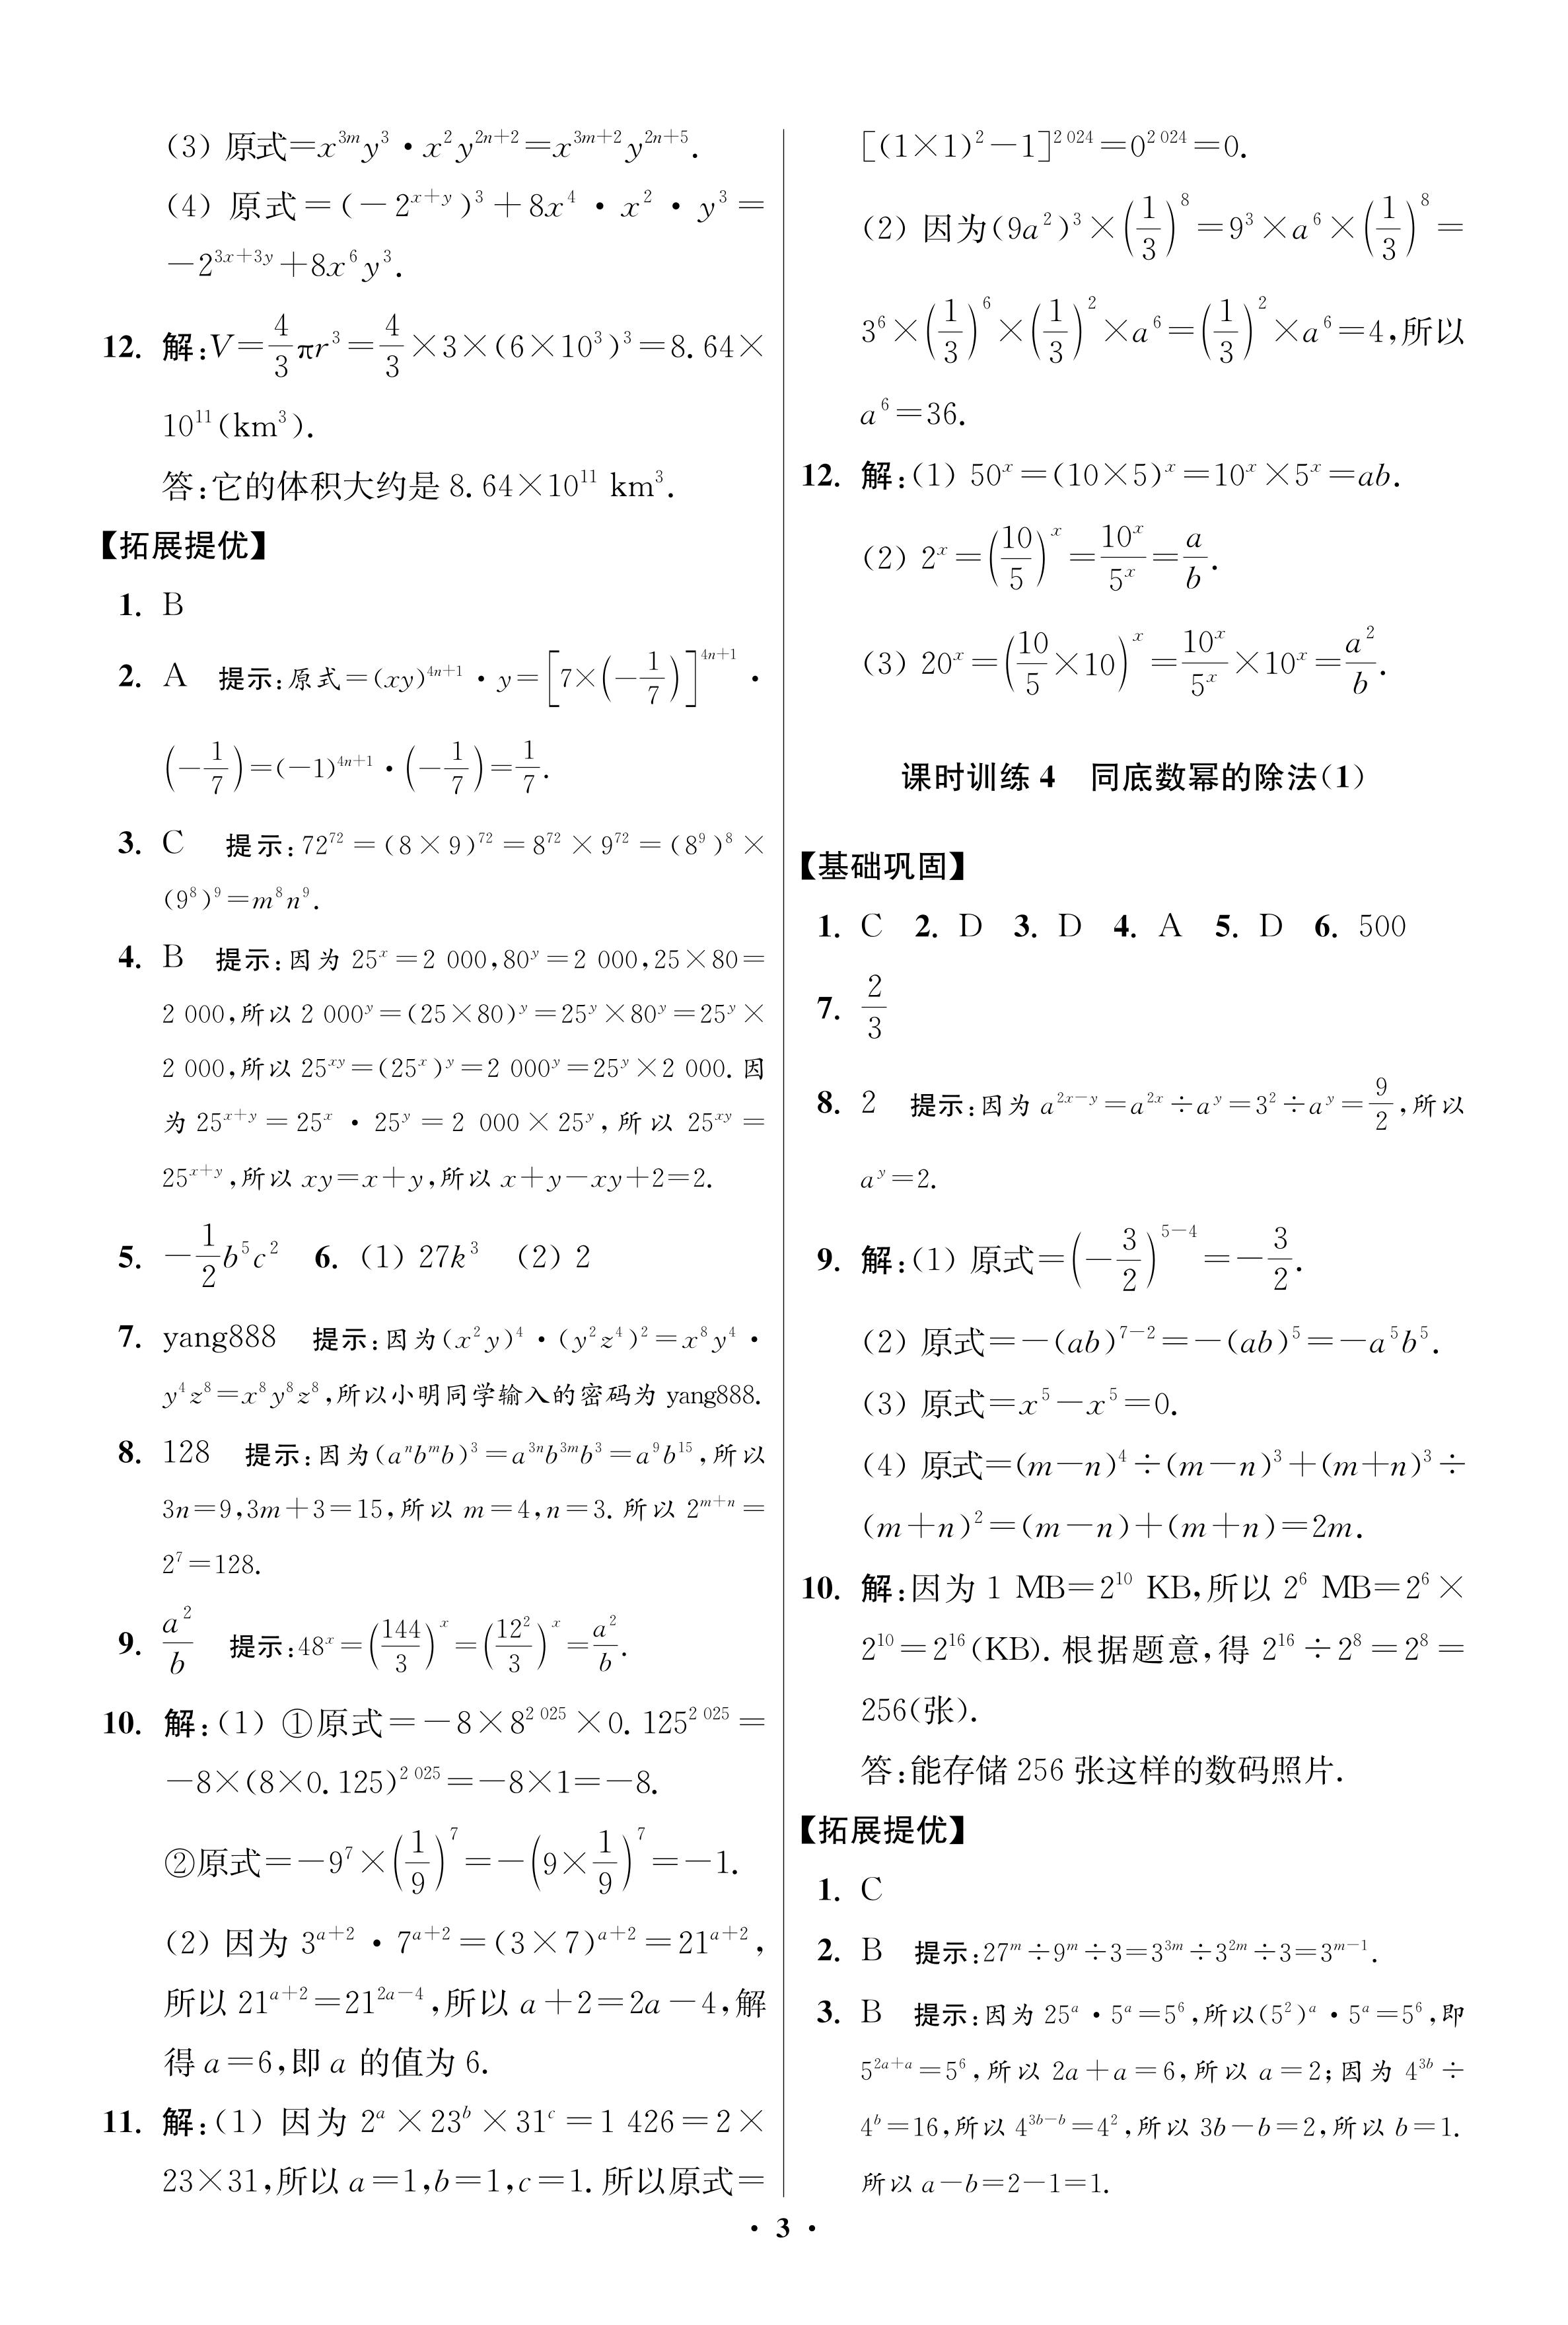 (3) 原式=x^{3m}y^3·x^2y^{2n+2}=x^{3m+2}y^{2n+5}.
(4) 原式=(-2^{x+y})^3+8x^4·x^2·y^3=
-2^{3x+3y}+8x^6y^3.
12. 解:V=\frac{4}{3}πr^3=\frac{4}{3}×3×(6×10^3)^3=8.64×
10^{11}(km^3).
答:它的体积大约是 8.64×10^{11} km^3.
【拓展提优】
1. B
2. A 提示:原式=(xy)^{4n+1}·y=[7×(-\frac{1}{7})]^{4n+1}·
(-\frac{1}{7})=(-1)^{4n+1}·(-\frac{1}{7})=\frac{1}{7}.
3. C 提示:72^{72}=(8×9)^{72}=8^{72}×9^{72}=(8^9)^8×
(9^8)^9=m^8n^9.
4. B 提示:因为 25^x=2 000,80^y=2 000,25×80=
2 000,所以 2 000^y=(25×80)^y=25^y×80^y=25^y×
2 000,所以 25^{xy}=(25^x)^y=2 000^y=25^y×2 000. 因
为 25^{x+y}=25^x·25^y=2 000×25^y,所以 25^{xy}=
25^{x+y},所以 xy=x+y,所以 x+y-xy+2=2.
5. -\frac{1}{2}b^5c^2 6. (1) 27k^3 (2) 2
7. yang888 提示:因为(x^2y)^4·(y^2z^4)^2=x^8y^4·
y^4z^8=x^8y^8z^8,所以小明同学输入的密码为 yang888.
8. 128 提示:因为(a^nb^mb)^3=a^{3n}b^{3m}b^3=a^9b^{15},所以
3n=9,3m+3=15,所以 m=4,n=3. 所以 2^{m+n}=
2^7=128.
9. \frac{a^2}{b} 提示:48^x=(\frac{144}{3})^x=(\frac{12^2}{3})^x=\frac{a^2}{b}.
10. 解:(1) ①原式=-8×8^{2 025}×0.125^{2 025}=
-8×(8×0.125)^{2 025}=-8×1=-8.
②原式=-9^7×(\frac{1}{9})^7=-(9×\frac{1}{9})^7=-1.
(2) 因为 3^{a+2}·7^{a+2}=(3×7)^{a+2}=21^{a+2},
所以 21^{a+2}=21^{2a-4},所以 a+2=2a-4,解
得 a=6,即 a 的值为 6.
11. 解:(1) 因为 2^a×23^b×31^c=1 426=2×
23×31,所以 a=1,b=1,c=1. 所以原式=
[(1×1)^2-1]^{2 024}=0^{2 024}=0.
(2) 因为(9a^2)^3×(\frac{1}{3})^8=9^3×a^6×(\frac{1}{3})^8=
3^6×(\frac{1}{3})^6×(\frac{1}{3})^2×a^6=(\frac{1}{3})^2×a^6=4,所以
a^6=36.
12. 解:(1) 50^x=(10×5)^x=10^x×5^x=ab.
(2) 2^x=(\frac{10}{5})^x=\frac{10^x}{5^x}=\frac{a}{b}.
(3) 20^x=(\frac{10}{5}×10)^x=\frac{10^x}{5^x}×10^x=\frac{a^2}{b}.
课时训练 4 同底数幂的除法(1)
【基础巩固】
1. C 2. D 3. D 4. A 5. D 6. 500
7. \frac{2}{3}
8. 2 提示:因为 a^{2x-y}=a^{2x}÷a^y=3^2÷a^y=\frac{9}{2},所以
a^y=2.
9. 解:(1) 原式=(-\frac{3}{2})^{5-4}=-\frac{3}{2}.
(2) 原式=-(ab)^{7-2}=-(ab)^5=-a^5b^5.
(3) 原式=x^5-x^5=0.
(4) 原式=(m-n)^4÷(m-n)^3+(m+n)^3÷
(m+n)^2=(m-n)+(m+n)=2m.
10. 解:因为 1 MB=2^{10} KB,所以 2^6 MB=2^6×
2^{10}=2^{16}(KB). 根据题意,得 2^{16}÷2^8=2^8=
256(张).
答:能存储 256 张这样的数码照片.
【拓展提优】
1. C
2. B 提示:27^m÷9^m÷3=3^{3m}÷3^{2m}÷3=3^{m-1}.
3. B 提示:因为 25^a·5^a=5^6,所以(5^2)^a·5^a=5^6,即
5^{2a+a}=5^6,所以 2a+a=6,所以 a=2;因为 4^{3b}÷
4^b=16,所以 4^{3b-b}=4^2,所以 3b-b=2,所以 b=1.
所以 a-b=2-1=1.
· 3 ·